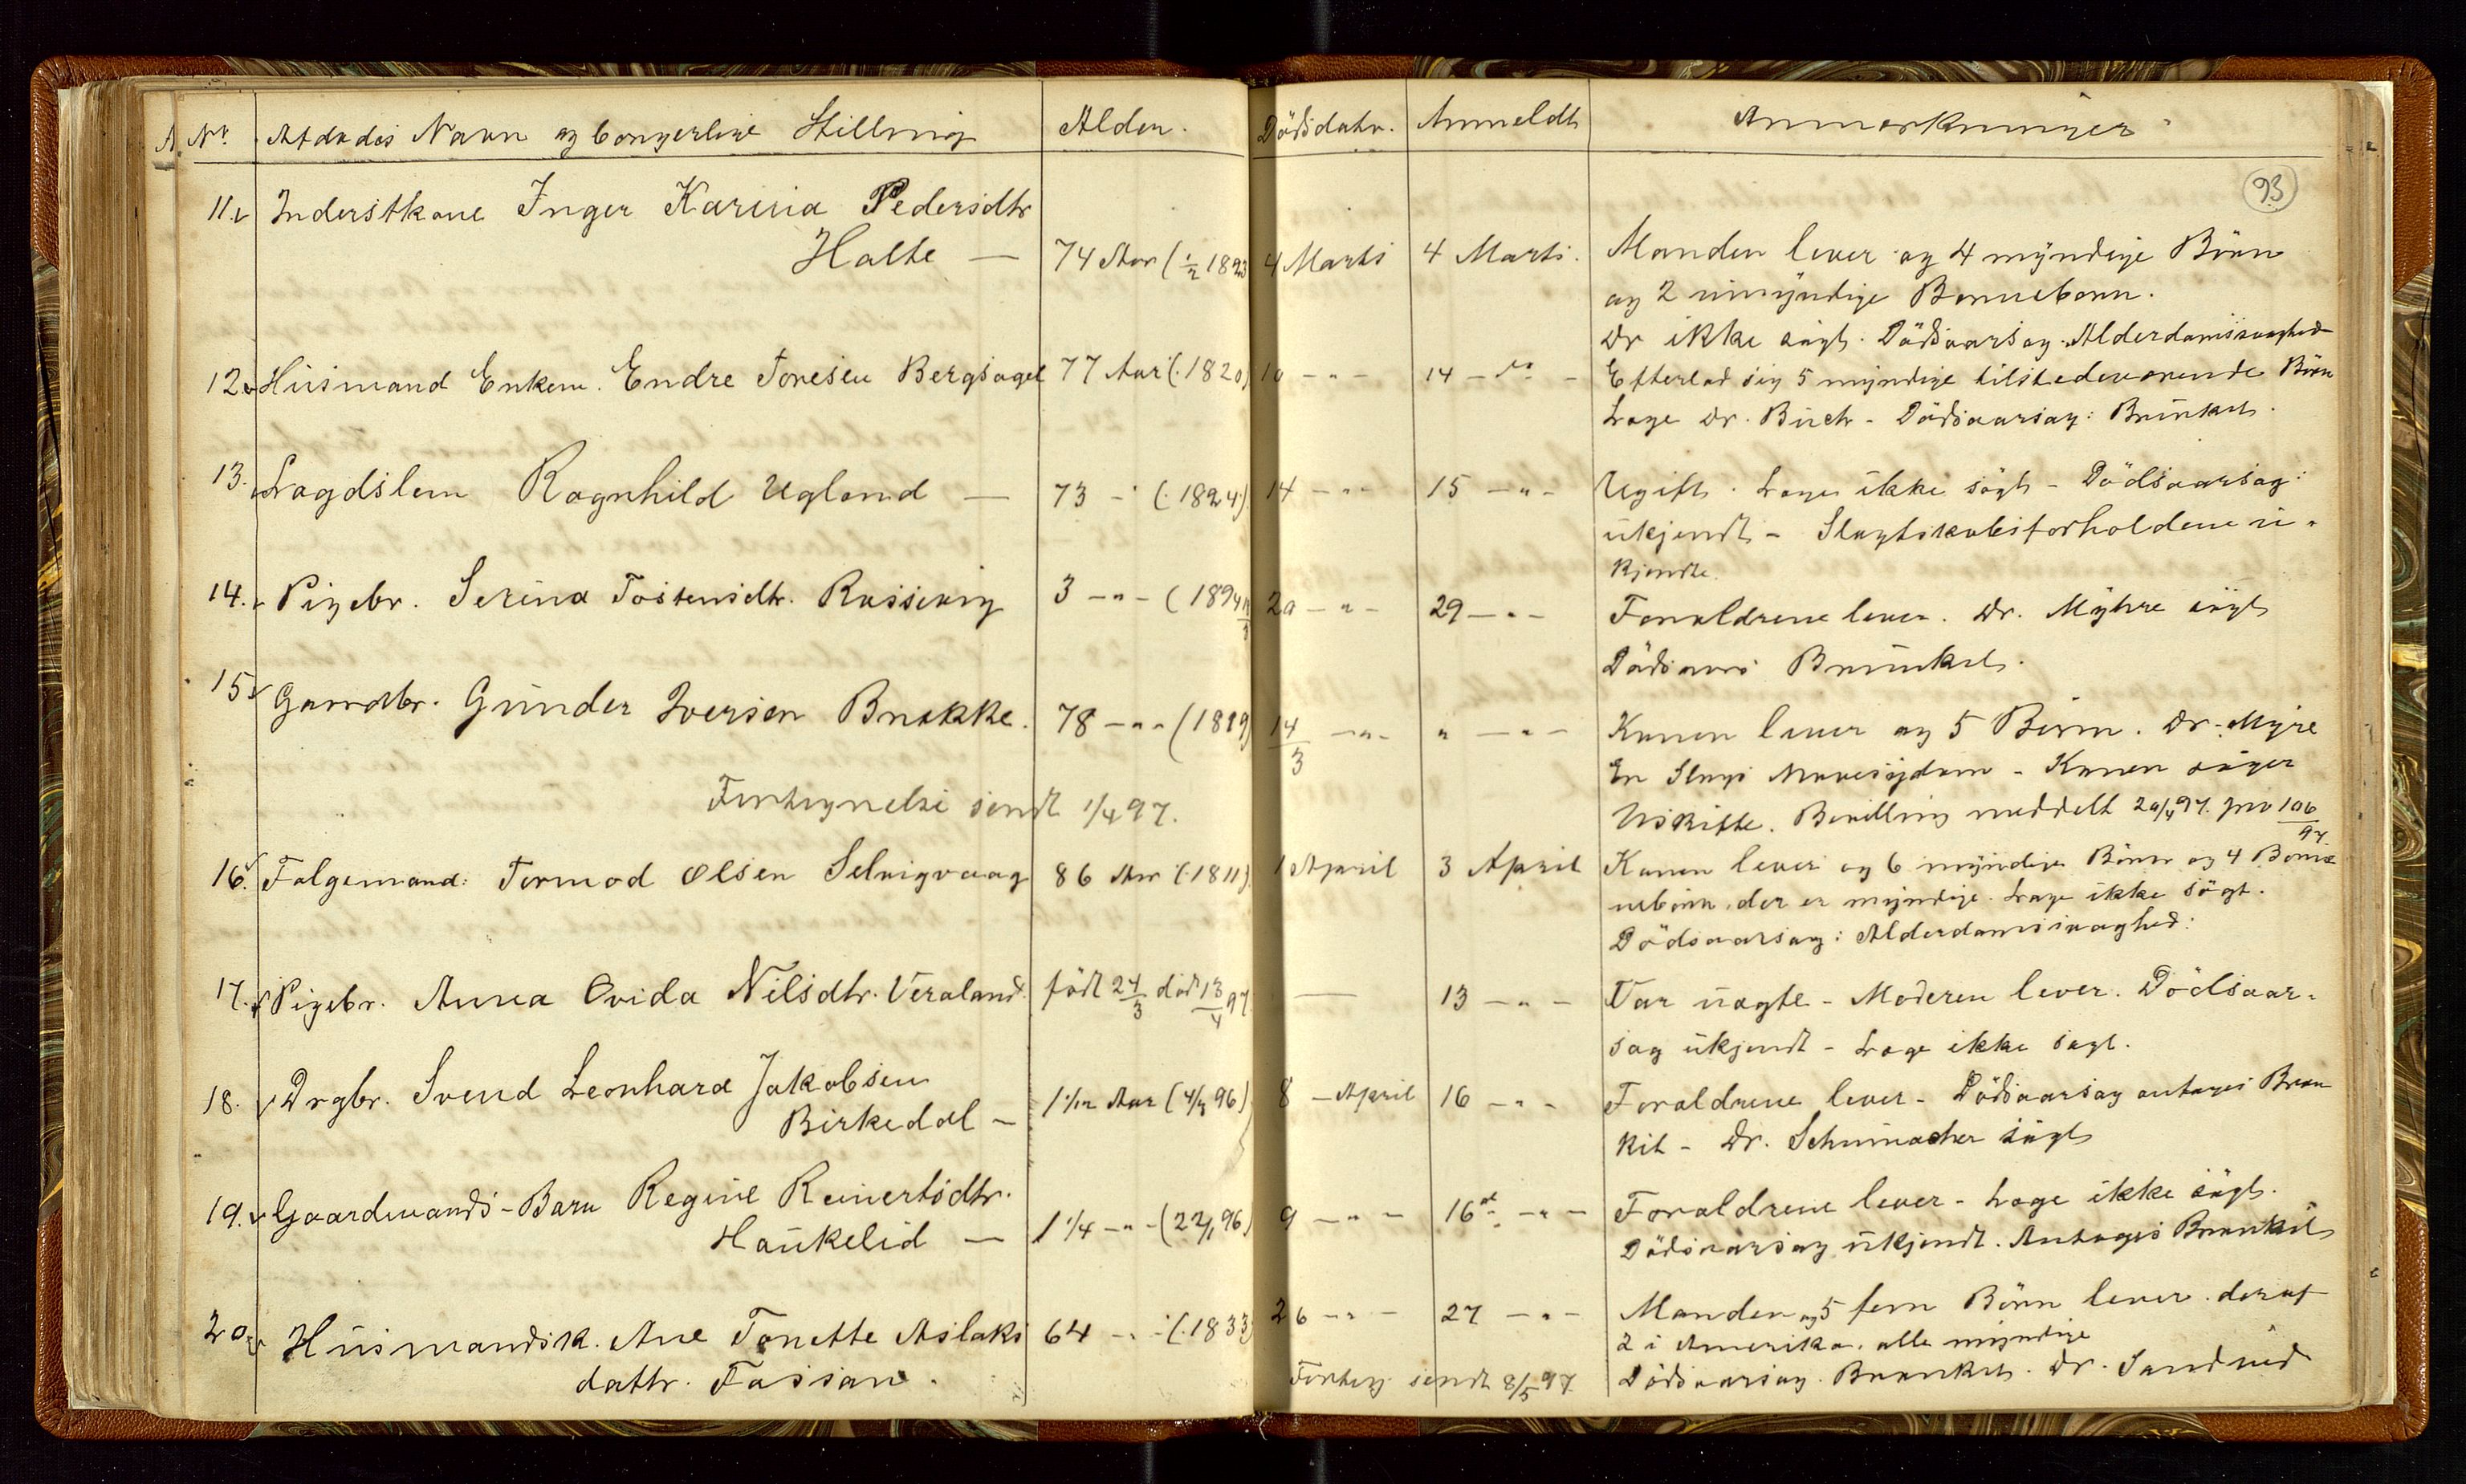 Nr. Afdødes Navn og borgerlige Stilling Alder. Dödsdato. Anmeldt Anmærkninger
93
11. Inderstkone Inger Karina Pedersdtr
Halte — 74 Aar (½ 1823 4 Marts 4 Marts. Manden lever og 4 myndige Börn
og 2 umyndige Börneborn.
Dr ikke sögt. Dödsaarsag Alderdomssvaghed
12. Husmand Enkem. Endre Toresen Bergsagel 77 Aar (1820) 10 - " - 14 - " - Efterlod sig 5 myndige tilstedeværende Börn
Læge Dr. Buch - Dödsaarsag: Brunkit.
13. Lægdslem Ragnhild Ugland — 73 - " (1824) 14 - " - 15 - " - Ugift. Læge ikke sögt - Dödsaarsag:
ukjendt - Slægtskabsforholdene u-
kjendte.
14. Pigebr. Serina Tostensdtr. Røssevig 3 - " - (1894 20 - " - 29 - " - Forældrene lever. Dr. Myhre sögt
Dödsaars Brunkit.
15. Gaardbr. Gunder Iversen Brekke. 78 - " - (1819) 14/3 - " - " - " - Konen lever og 5 Börn. Dr. Myre
En Slags Mavesygdom - Konen söger
Uskifte. Bevilling meddelt 20/4 97. jno 106/97.
Fortegnelse sendt 1/4 97.
16. Folgemand: Tormod Olsen Selvigvaag 86 Aar (1811) 1 April 3 April Konen lever og 6 myndige Börn og 4 Börne
nebörn, der er myndige. Læge ikke sögt.
Dödsaarsag: Alderdomssvaghed:
17. Pigebr. Anna Ovida Nilsdtr. Veraland. födt 24/3 död 13/4 97 — 13 - " - Var uægte - Moderen lever. Dödsaar-
sag ukjendt - Læge ikke sögt.
18. Drgbr. Svend Leonhard Jakobsen
Birkedal — 1 1/12 Aar (4/3 96) 8 - April 16 - " - Forældrene lever - Dödsaarsag antages Bron
kit - Dr. Schumacher sögt
19. Gaardmands-Barn Regine Reinertsdtr.
Haukelid — 1 1/4 - " - (22/1 96) 9 - " - 16de - " - Forældrene lever - Læge ikke sögt.
Dödsaarsag ukjendt. Antages Bronkit
20. Husmandsk. Ane Tonette Aslaks 64 - " - (1833) 26 - " - 27 - " - Manden og 5 fem Börn lever. deraf
2 i Amerika. alle myndige
dattr. Fossan. Forteg. sendt 8/5 97 Dödsaarsag. Bronkit. Dr. Sandved